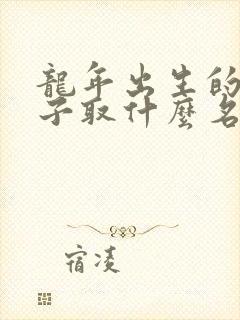 龍年出生的
子取什麼名
宿凌